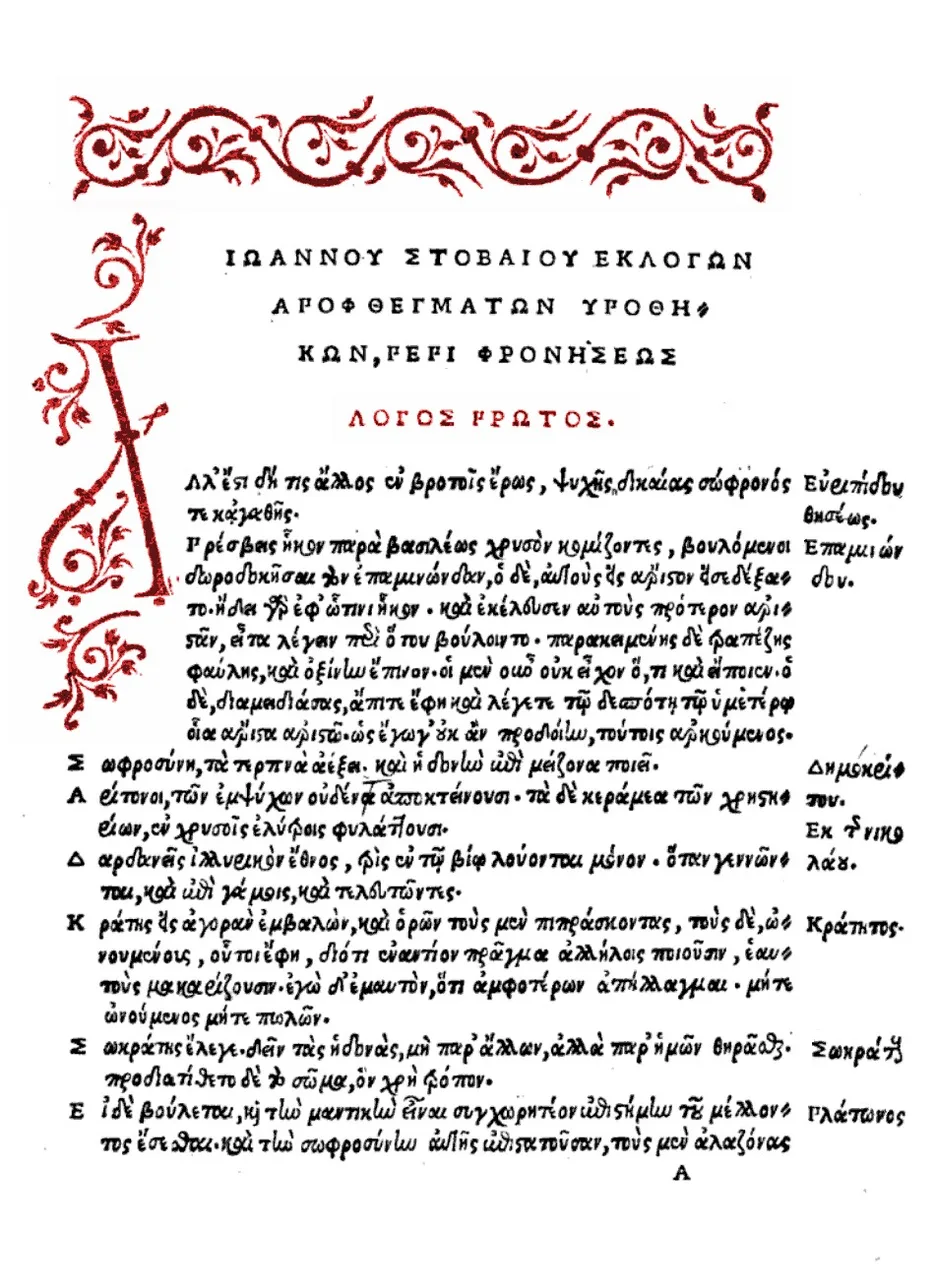 ΙΩΑΝΝΟΥ ΣΤΟΒΑΙΟΥ ΕΚΛΟΓΩΝ
ΑΠΟΦΘΕΓΜΑΤΩΝ ΥΠΟΘΗ-
ΚΩΝ, ΠΕΡΙ ΦΡΟΝΗΣΕΩΣ
ΛΟΓΟΣ ΠΡΩΤΟΣ.
Αλλ' ἔστι δή τις ἄλλος ἐν βροτοῖς ἔρως, ψυχῆς δικαίας σώφρονός
τε κἀγαθῆς.
Εὐριπίδου
θησέως.
Πρέσβεις ἧκον παρὰ βασιλέως χρυσὸν κομίζοντες, βουλόμενοι
δωροδοκῆσαι τὸν ἐπαμινώνδαν, ὁ δὲ, αὐτοὺς εἰς ἄριστον εἰσεδέξα-
το. ἤδει γὰρ ἐφ' ᾧτινι ἧκον. καὶ ἐκέλευσεν αὐτοὺς πρότερον ἀρι-
στᾶν, εἶτα λέγειν περὶ ὅτου βούλοιντο. παρακειμένης δὲ τραπέζης
φαύλης, καὶ ὀξίνην ἔπινον. οἱ μὲν οὖν οὐκ εἶχον ὅ, τι καὶ εἴποιεν. ὁ
δὲ, διαμειδιάσας, ἄπιτε ἔφη καὶ λέγετε τῷ δεσπότῃ τῷ ὑμετέρῳ
οἷα ἄριστα ἀριστῶ. ὡς ἔγωγ' οὐκ ἂν προδοίην, τούτοις ἀρκούμενος.
Επαμινών
δου.
Σωφροσύνη, τὰ τερπνὰ ἀέξει. καὶ ἡδονὴν ἐπὶ μείζονα ποιεῖ.
Δημοκρί-
του.
Αείτονοι, τῶν ἐμψύχων οὐδένα ἀποκτείνουσι. τὰ δὲ κεράμεα τῶν χρηστη-
ρίων, ἐν χρυσοῖς ἐλύτροις φυλάττουσι.
Εκ τοῦ νικο
λάου.
Δαρδανεῖς ἰλλυρικὸν ἔθνος, τρὶς ἐν τῷ βίῳ λούονται μόνον. ὅταν γεννῶν-
ται, καὶ ἐπὶ γάμοις, καὶ τελευτῶντες.
Κράτης εἰς ἀγορὰν ἐμβαλὼν, καὶ ὁρῶν τοὺς μὲν πιπράσκοντας, τοὺς δὲ, ὠ-
νουμένους, οὗτοι ἔφη, διότι ἐναντίον πρᾶγμα ἀλλήλοις ποιοῦσιν, ἑαυ-
τοὺς μακαρίζουσιν. ἐγὼ δ' ἐμαυτὸν, ὅτι ἀμφοτέρων ἀπήλλαγμαι. μήτε
ὠνούμενος μήτε πωλῶν.
Κράτητος.
Σωκράτης ἔλεγε. δεῖν τὰς ἡδονὰς, μὴ παρ' ἄλλων, ἀλλὰ παρ' ἡμῶν θηρᾶσθαι.
προδιατίθετο δὲ τὸ σῶμα, ὃν χρὴ τρόπον.
Σωκράτης
Εἰ δὲ βούλεται, καὶ τὴν μαντικὴν εἶναι συγχωρητέον ἐπιστήμην τοῦ μέλλον-
τος ἔσεσθαι. καὶ τὴν σωφροσύνην αὐτῆς ἐπιστατοῦσαν, τοὺς μὲν ἀλαζόνας
Πλάτωνος
Α